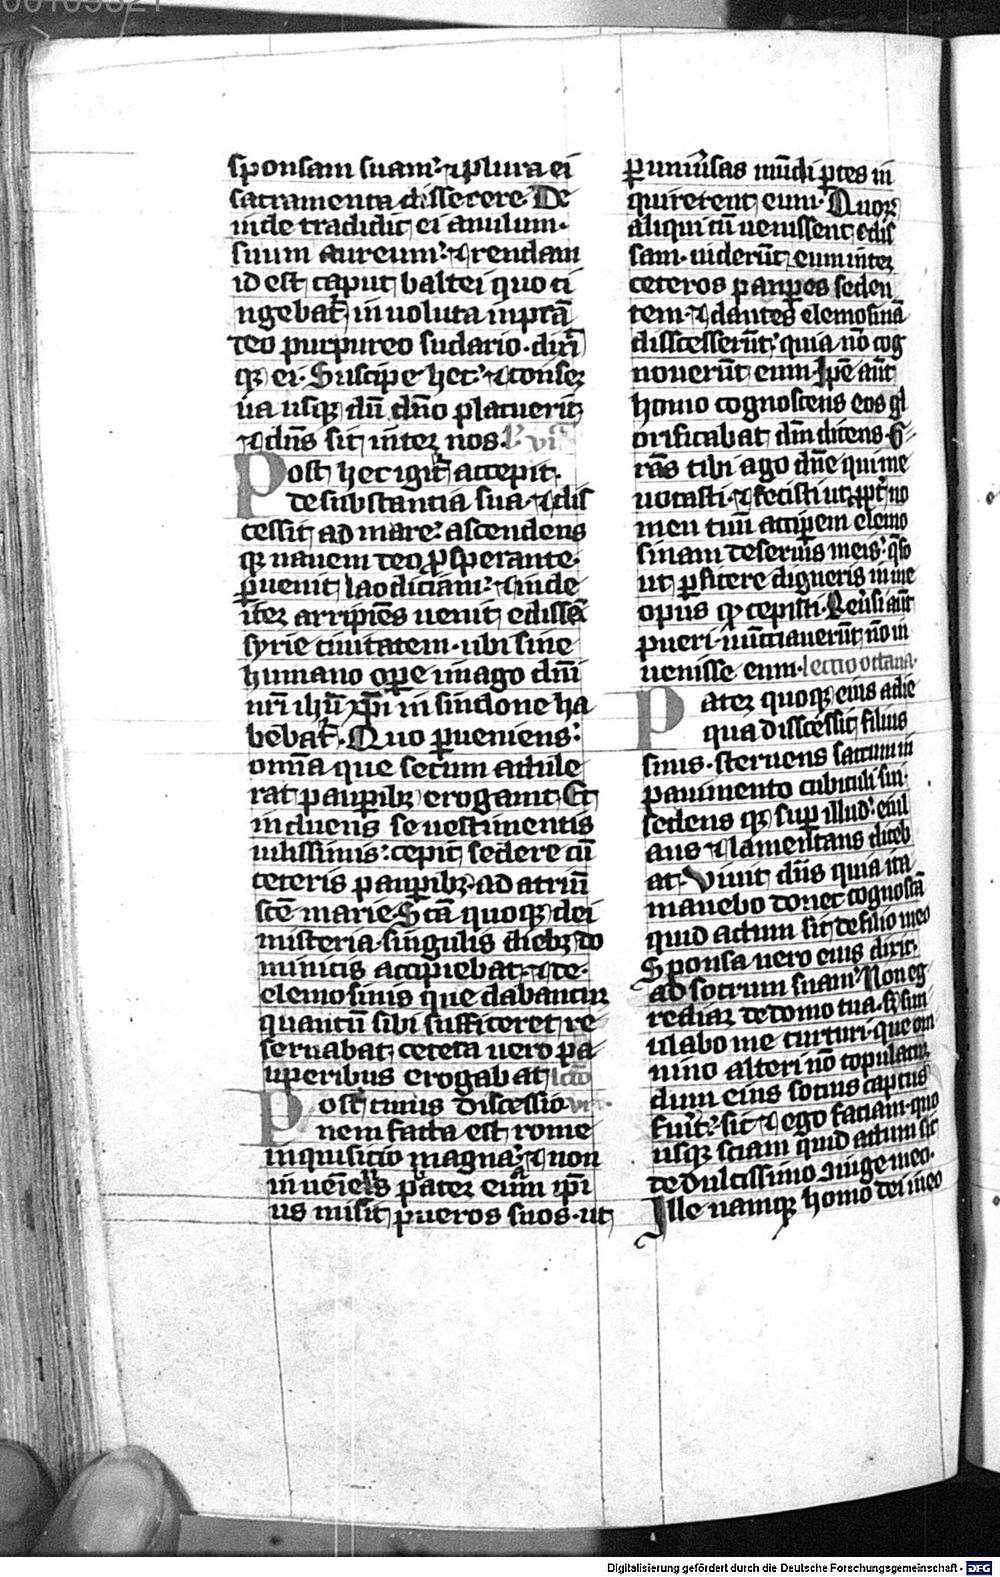 sponsam suam·⁊ plura ei
sacramenta disserere· De
inde tradidit ei anulum·
suum aureum·⁊ rendam
id est caput baltei quo ci
ngebat̄ inuoluta in prā
deo purpureo sudario·dixit
qꝫ ei· Suscipe hec·⁊ conser
ua usqꝫ dū dn̄o placuerit
⁊ dn̄s sit inter nos· l· vi
Post hec igit̄ accepit·
de substancia sua·⁊ dis
cessit ad mare· ascendens
qꝫ nauem deo ꝓsperante·
ꝑuenit laodiciam·⁊ inde
iter arripiēs uenit edissā
syrie ciuitatem·ubi sine
humano oꝑe imago dn̄i
nr̄i ih̄u xp̄i in sindone ha
bebat̄· Quo ꝑueniens·
omīa que secum adtule
rat paupibꝫ erogauit Et
induens se uestimentis
uilissimis·cepit sedere cū
ceteris paupibꝫ·ad atriū
sc̄e marie· Sc̄a quoqꝫ dei
misteria·singulis diebꝫ do
minicis accipiebat·⁊ de·
elemosinis que dabantur
quantū sibi sufficeret re
seruabat cetera uero pa
uperibus erogabat lc̄o
Post cuius discessio vii·
nem facta est rome
inquisicio magna·⁊ non
inueniēs pater eum ip̄i
us misit pueros suos·ut
ꝑ uniūsas mūdi ꝑtes in
quirerent eum· Quoꝝ
aliqui cū uenissent edis
sam·uiderūt eum inter
ceteros pauꝑes seden
tem·⁊ dantes elemosinā
discesserūt·quia nō cog
nouerūt eum· Ip̄e aūt
homo cognoscens eos gl
orificabat dm̄ dicens· G
rās tibi ago dn̄e qui me
uocasti·⁊ fecisti ut ꝓpt̄ no
men tuū acciꝑem elemo
sinam de seruis meis· q̄so
ut ꝑficere digneris in me
opus qđ cepisti· Reūsi aūt
pueri nūciauerūt nō in
uenisse eum· lectio octaua·
Pater quoqꝫ eius a die
qua discessit filius
suus·sternens saccum in
pauimento cubiculi sui·
sedens qꝫ suꝑ illud· eiul
ans ⁊ lamentans diceb
at· Viuit dn̄s quia ita
manebo donec cognoscā
quid actum sit de filio meo
Sponsa uero eius dixit·
ad socrum suam· Non eg
rediar de domo tua·sꝫ sim
ulabo me turturi·que om
nino alteri nō copulatur
dum eius socius captus
fuit̄·sic ⁊ ego faciam·quo
usqꝫ sciam quid actum sit
de dulcissimo ꝯiuge meo·
Ille namqꝫ homo dei meo
Digitalisierung gefördert durch die Deutsche Forschungsgemeinschaft - DFG